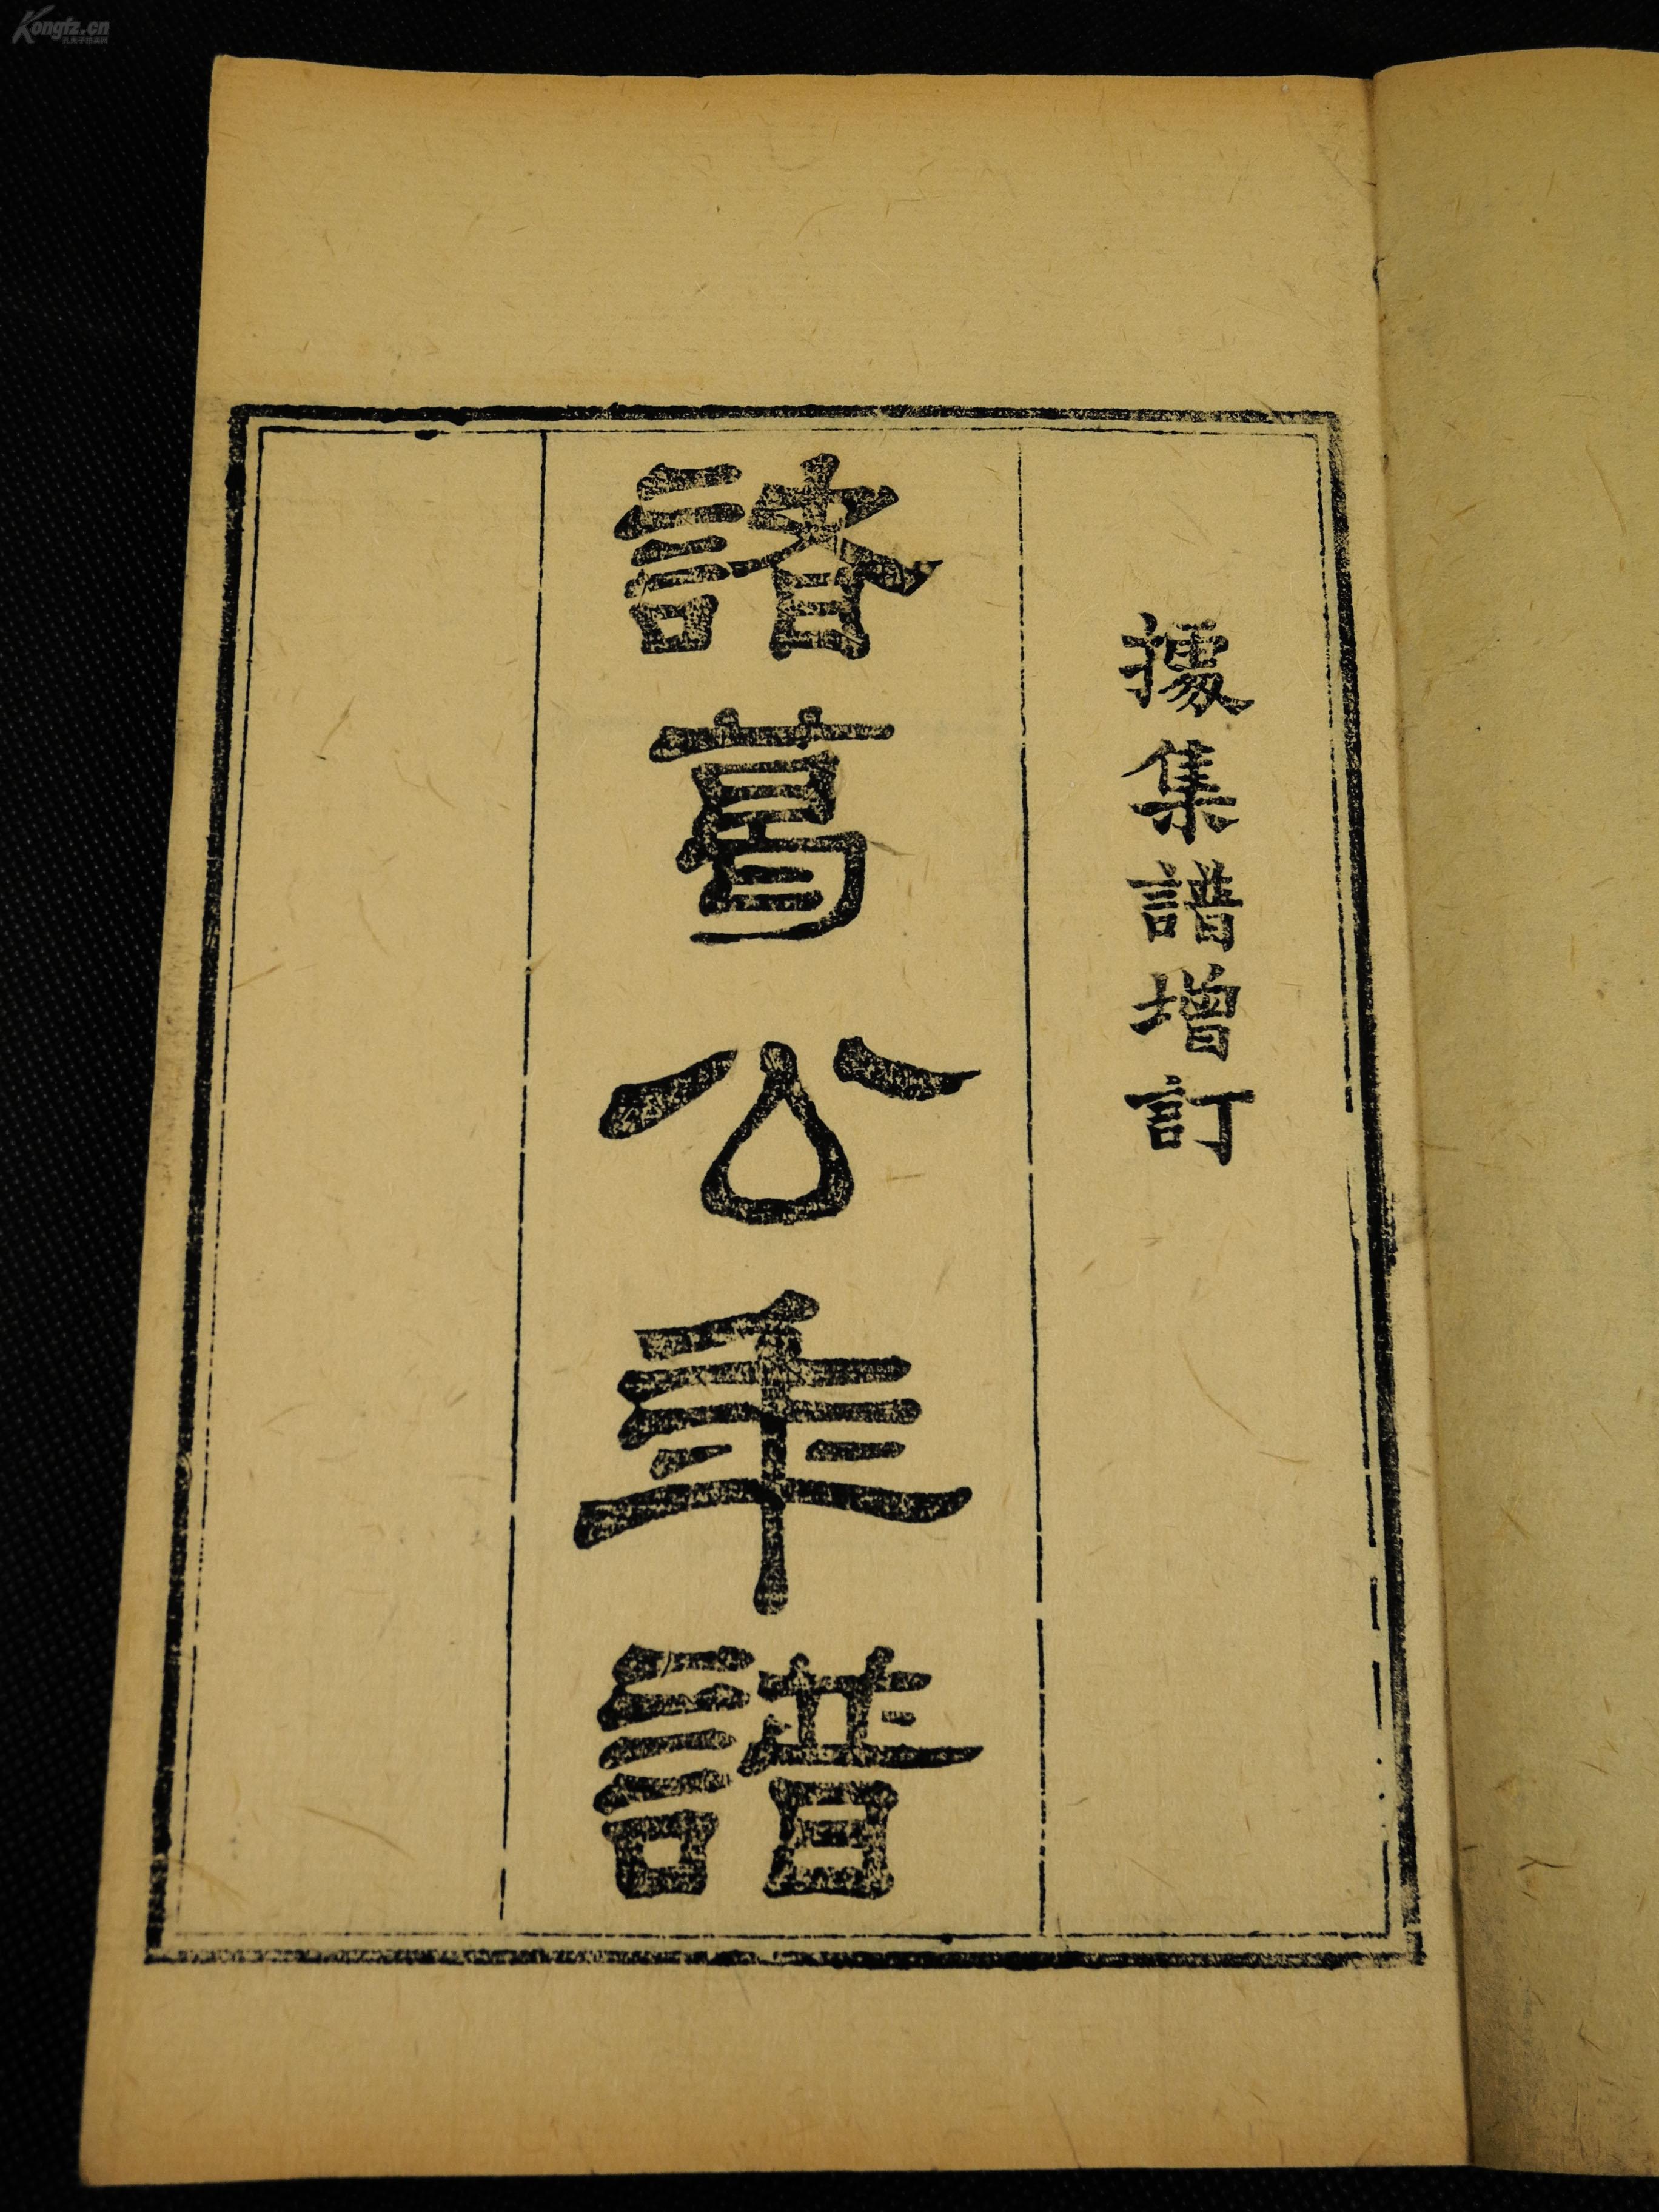 據集譜增訂
諸葛公年譜
Kongfz.cn